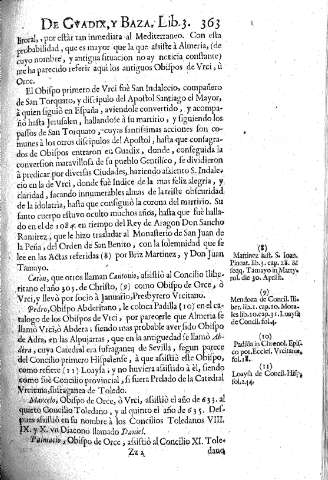 DE GVADIX, Y BAZA, Lib. 3. 363
litoral, por estàr tan inmediata al Mediterraneo. Con esta
probabilidad, que es mayor que la que assiste à Almeria, (de
cuyo nombre, y antigua situacion no ay noticia constante)
me ha parecido referir aqui los antiguos Obispos de Vrci, ù
Orce.
El Obispo primero de Vrci fuè San Indalecio, compañero
de San Torquato, y discipulo del Apostol Santiago el Mayor,
à quien siguiò en España, aviendole convertido, y acompa-
ñò hasta Jerusalèn, hallandose à su martirio, y siguiendo los
passos de San Torquato, cuyas santissimas acciones son co-
munes à los otros discipulos del Apostol, hasta que consagra-
dos de Obispos entraron en Guadix, donde, conseguida la
conversion maravillosa de su pueblo Gentilico, se dividieron
à predicar por diversas Ciudades, haziendo assiento S. Indale-
cio en la de Vrci, donde fuè Indice de la mas feliz alegria, y
claridad, sacando innumerables almas de la triste obscuridad
de la idolatria, hasta que consiguiò la corona del martirio. Su
santo cuerpo estuvo oculto muchos años, hasta que fuè halla-
do en el de 1084. en tiempo del Rey de Aragon Don Sancho
Ramirez, que le hizo trasladar al Monasterio de San Juan de
la Peña, del Orden de San Benito, con la solemnidad que se
lee en las Actas referidas (8) por Briz Martinez, y Don Juan
Tamayo.
(8)
Martinez hist. S. Ioan.
Pinat. lib. 1. cap. 28. &
seqq. Tamayo in Marty-
rol. die 30. Aprilis.
Carino, que otros llaman Cantonio, assistiò al Concilio Ilibe-
ritano el año 305. de Christo, (9) como Obispo de Orce, ò
Vrci, y llevò por socio à Januario, Presbytero Vrcitano.
(9)
Mendoza de Concil. Illi-
ber. lib. 1. cap. 10. Mora-
les lib. 10. cap. 31. Loaysa
de Concil. fol. 4.
Pedro, Obispo Abderitano, le coloca Padilla (10) en el ca-
talogo de los Obispos de Vrci, por parecerle que Almeria se
llamò Vrciò, Abdera; siendo mas probable aver sido Obispo
de Adra, en las Alpujarras, que en la antiguedad se llamò Ab-
dera, cuya Catedral era sufraganea de Sevilla, segun parece
del Concilio primero Hispalense, à que assistiò este Obispo,
como refiere (11) Loaysa, y no huviera assistido à èl, siendo
como fuè Concilio provincial, si fuera Prelado de la Catedral
Vrciense, sufraganea de Toledo.
(10)
Padilla in Chronol. Epis-
co por. Eccles. Vrcitanæ,
fol. 18.
(11)
Loaysa de Concil. Hisp.
fol. 244.
Marcelo, Obispo de Orce, ò Vrci, assistiò el año de 633. al
quarto Concilio Toledano, y al quinto el año de 635. Des-
pues assistiò en su nombre à los Concilios Toledanos VIII.
IX. y X. vn Diacono llamado Daniel.
Palmacio, Obispo de Orce, assistiò al Concilio XI. Tole-
Zz 2 dano